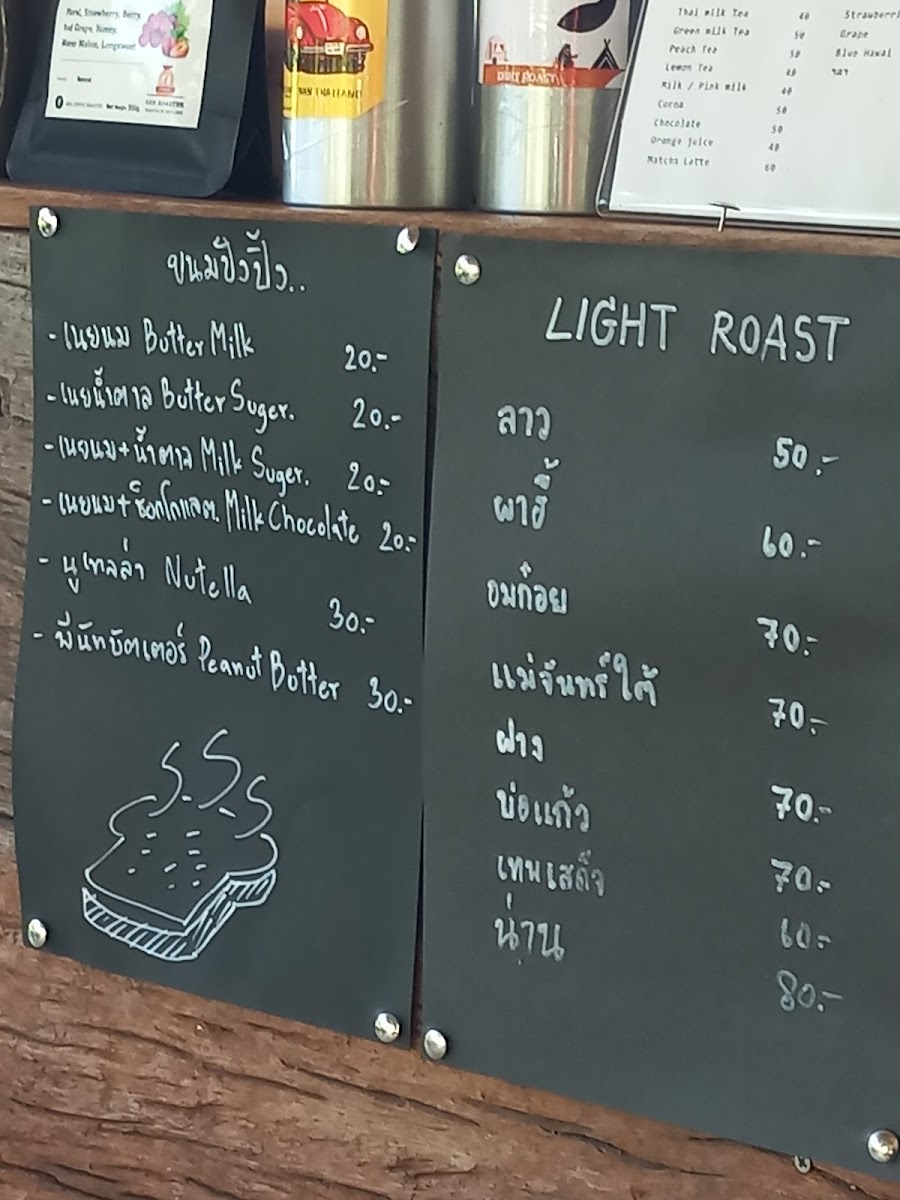 Floral, Strawberry, Berry,
Red Grape, Honey,
Water Melon, Longsweet
DRIP ROAST
Thai milk Tea 40
Green milk Tea 50
Peach Tea 50
Lemon Tea 40
Milk / Pink milk 40
Cocoa 50
Chocolate 50
Orange juice 40
Matcha Latte 60
Strawberri
Grape
Blue Hawai
ขนมปังปิ้ง..
- เนยนม Butter Milk 20.-
- เนยน้ำตาล Butter Suger. 20.-
- เนยนม+น้ำตาล Milk Suger. 20.-
- เนยนม+ช็อกโกแลต. Milk Chocolate 20.-
- นูเทลล่า Nutella 30.-
- พีนัทบัตเตอร์ Peanut Butter 30.-
LIGHT ROAST
ลาว 50.-
ผาฮี้ 60.-
อมก๋อย 70.-
แม่จันทร์ใต้ 70.-
ฝาง 70.-
บ่อแก้ว 70.-
เทพเสด็จ 60.-
น่าน 80.-